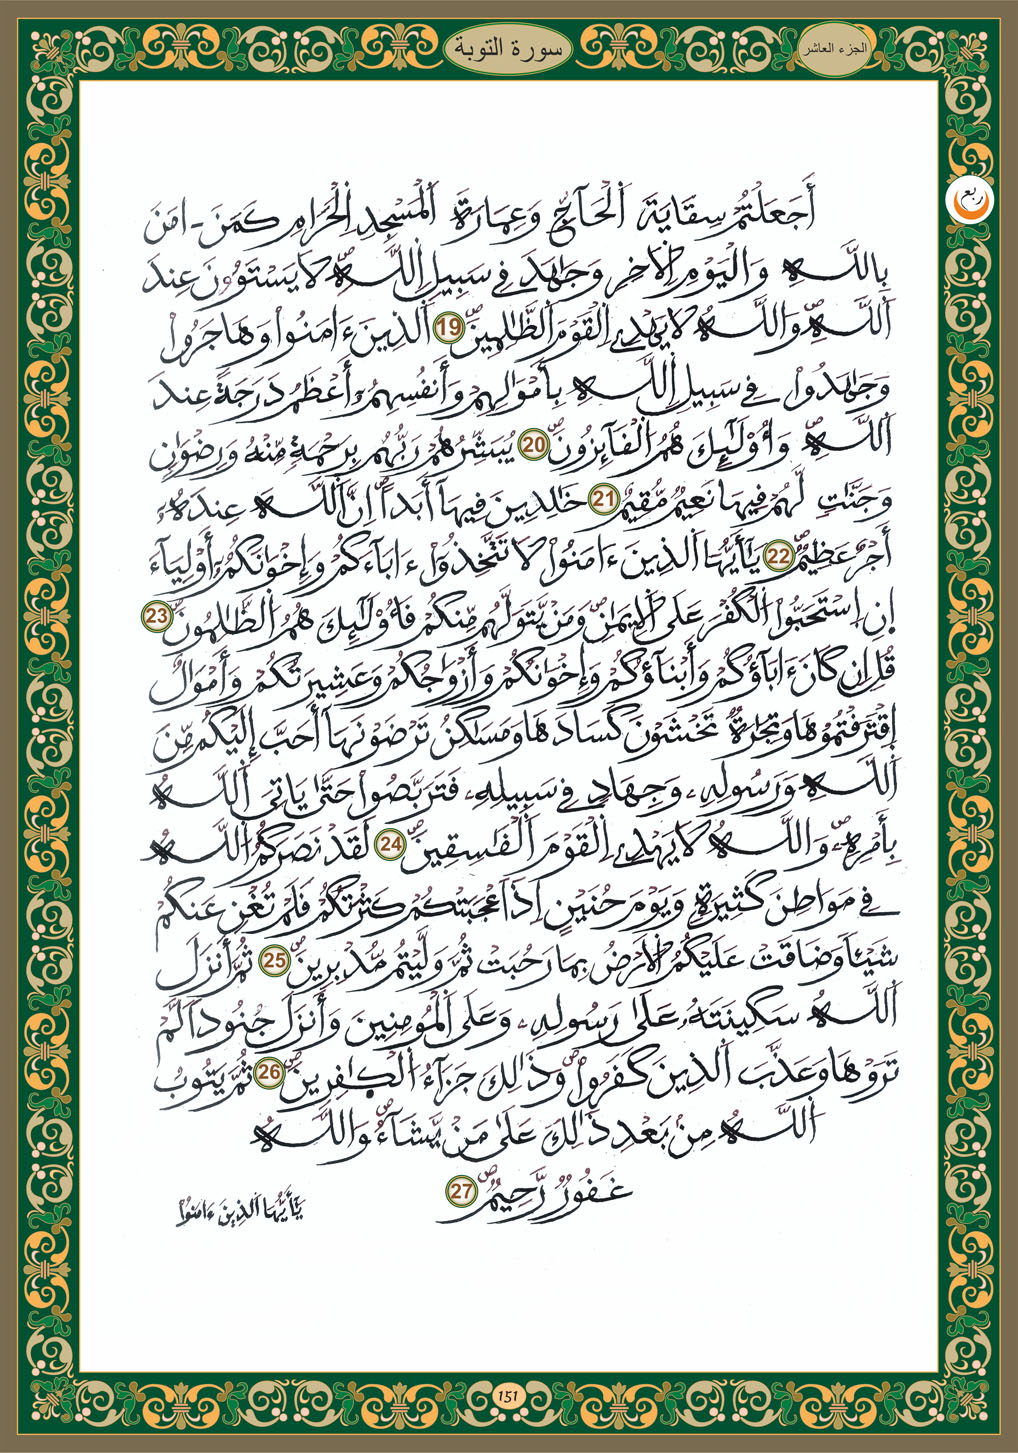 سورة التوبة
الجزء العاشر
ربع
أَجَعَلْتُمْ سِقَايَةَ اَ۬لْحَآجِّ وَعِمَارَةَ اَ۬لْمَسْجِدِ اِ۬لْحَرَامِ كَمَنَ ـ اٰمَنَ
بِاللَّهِ وَالْيَوْمِ اِ۬لَاخِرِ وَجَٰهَدَ فِے سَبِيلِ اِ۬للَّهِۖ لَا يَسْتَوُۥنَ عِندَ
اَ۬للَّهِۖ وَاللَّهُ لَا يَهْدِے اِ۬لْقَوْمَ اَ۬لظَّٰلِمِينَۖ 19 اَ۬لذِينَ ءَامَنُواْ وَهَاجَرُواْ
وَجَٰهَدُواْ فِے سَبِيلِ اِ۬للَّهِ بِأَمْوَٰلِهِمْ وَأَنفُسِهِمُۥٓ أَعْظَمُ دَرَجَةً عِندَ
اَ۬للَّهِۖ وَأُوْلَٰٓئِكَ هُمُ اُ۬لْفَآئِزُونَۖ 20 يُبَشِّرُهُمْ رَبُّهُم بِرَحْمَةٖ مِّنْهُ وَرِضْوَٰنٖ
وَجَنَّٰتٖ لَّهُمْ فِيهَا نَعِيمٞ مُّقِيمٌ 21 خَٰلِدِينَ فِيهَآ أَبَداًۖ اِنَّ اَ۬للَّهَ عِندَهُۥٓ
أَجْرٌ عَظِيمٞۖ 22 يَٰٓأَيُّهَا اَ۬لذِينَ ءَامَنُواْ لَا تَتَّخِذُوٓاْ ءَابَآءَكُمْ وَإِخْوَٰنَكُمُۥٓ أَوْلِيَآءَ
اِنِ اِ۪سْتَحَبُّواْ اُ۬لْكُفْرَ عَلَى اَ۬لِايمَٰنِۖ وَمَنْ يَّتَوَلَّهُم مِّنكُمْ فَأُوْلَٰٓئِكَ هُمُ اُ۬لظَّٰلِمُونَۖ 23
قُلِ اِن كَانَ ءَابَآؤُكُمْ وَأَبْنَآؤُكُمْ وَإِخْوَٰنُكُمْ وَأَزْوَٰجُكُمْ وَعَشِيرَتُكُمْ وَأَمْوَٰلٌ
اِ۪قْتَرَفْتُمُوهَا وَتِجَٰرَةٞ تَخْشَوْنَ كَسَادَهَا وَمَسَٰكِنُ تَرْضَوْنَهَآ أَحَبَّ إِلَيْكُم مِّنَ
اَ۬للَّهِ وَرَسُولِهِۦ وَجِهَادٖ فِے سَبِيلِهِۦ فَتَرَبَّصُواْ حَتَّىٰ يَاتِيَ اَ۬للَّهُ
بِأَمْرِهِۦۖ وَاللَّهُ لَا يَهْدِے اِ۬لْقَوْمَ اَ۬لْفَٰسِقِينَۖ 24 لَقَدْ نَصَرَكُمُ اُ۬للَّهُ
فِے مَوَاطِنَ كَثِيرَةٖ وَيَوْمَ حُنَيْنٍ اِذَ اَعْجَبَتْكُمْ كَثْرَتُكُمْ فَلَمْ تُغْنِ عَنكُمْ
شَيْـٔاٗ وَضَاقَتْ عَلَيْكُمُ اُ۬لَارْضُ بِمَا رَحُبَتْ ثُمَّ وَلَّيْتُم مُّدْبِرِينَۖ 25 ثُمَّ أَنزَلَ
اَ۬للَّهُ سَكِينَتَهُۥ عَلَىٰ رَسُولِهِۦ وَعَلَى اَ۬لْمُومِنِينَ وَأَنزَلَ جُنُوداٗ لَّمْ
تَرَوْهَا وَعَذَّبَ اَ۬لذِينَ كَفَرُواْۖ وَذَٰلِكَ جَزَآءُ اُ۬لْكٰ۪فِرِينَۖ 26 ثُمَّ يَتُوبُ
اُ۬للَّهُ مِنۢ بَعْدِ ذَٰلِكَ عَلَىٰ مَنْ يَّشَآءُۖ وَاللَّهُ
غَفُورٞ رَّحِيمٞۖ 27
يَٰٓأَيُّهَا اَ۬لذِينَ ءَامَنُوٓاْ
151